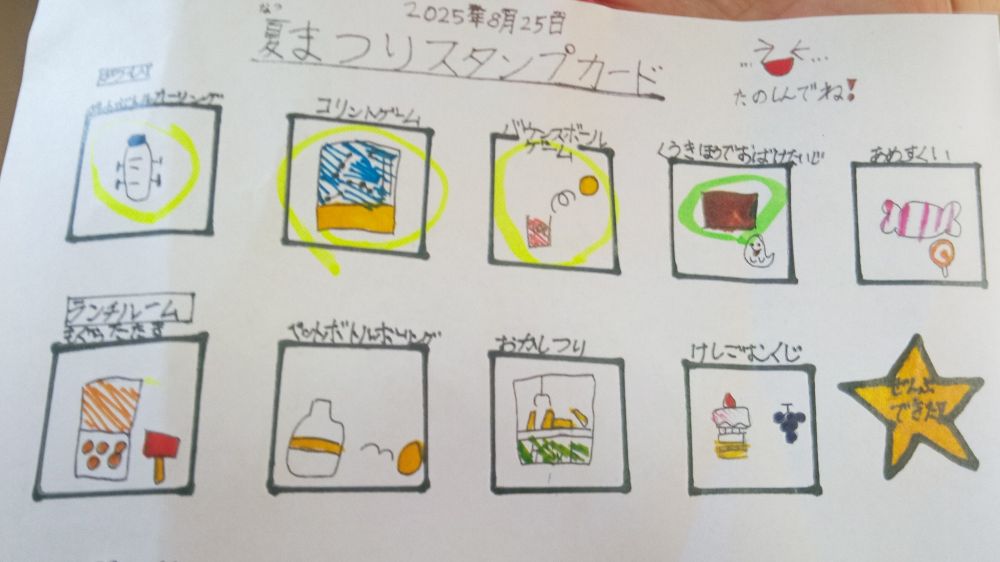 2025年8月25日
なつ
夏まつりスタンプカード
たのしんでね!
ペットボトルカーリング
コリントゲーム
バウンスボール
ゲーム
くうきほうでおばけたいじ
あめすくい
ランチルーム
もぐらたたき
ペットボトルボーリング
おかしつり
けしごむくじ
ぜんぶ
できた!